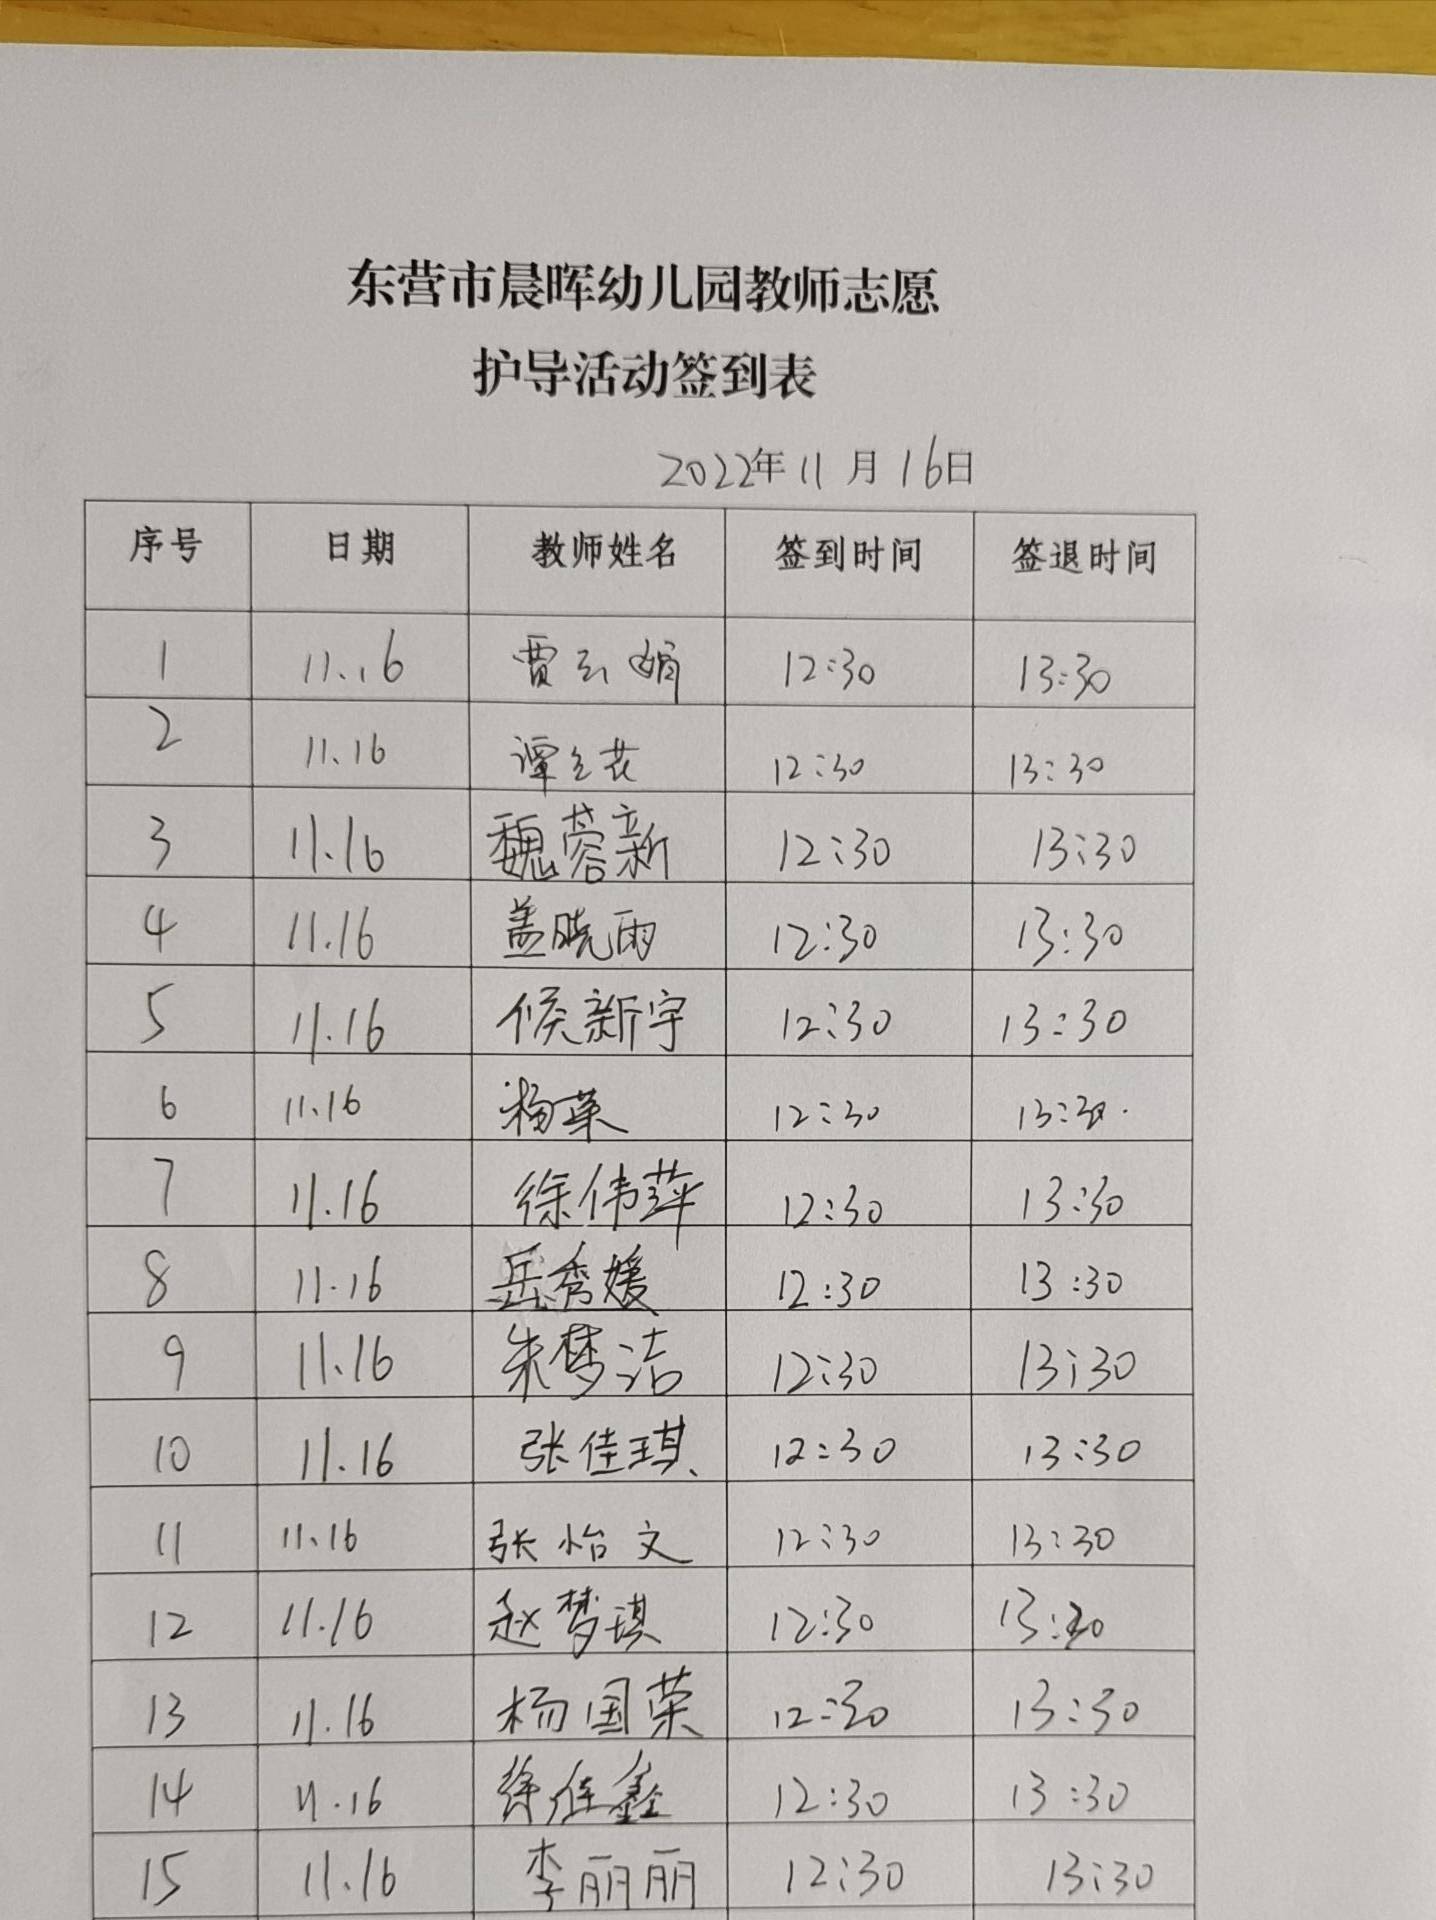 东营市晨晖幼儿园教师志愿
护导活动签到表
2022年11月16日
序号 日期 教师姓名 签到时间 签退时间
1 11.16 贾云娟 12:30 13:30
2 11.16 谭立花 12:30 13:30
3 11.16 魏蓉新 12:30 13:30
4 11.16 盖晓雨 12:30 13:30
5 11.16 候新宇 12:30 13:30
6 11.16 杨荣 12:30 13:30.
7 11.16 徐伟萍 12:30 13:30
8 11.16 岳秀媛 12:30 13:30
9 11.16 朱梦洁 12:30 13:30
10 11.16 张佳琪 12:30 13:30
11 11.16 张怡文 12:30 13:30
12 11.16 赵梦琪 12:30 13:30
13 11.16 杨国荣 12:30 13:30
14 11.16 徐佳鑫 12:30 13:30
15 11.16 李丽丽 12:30 13:30